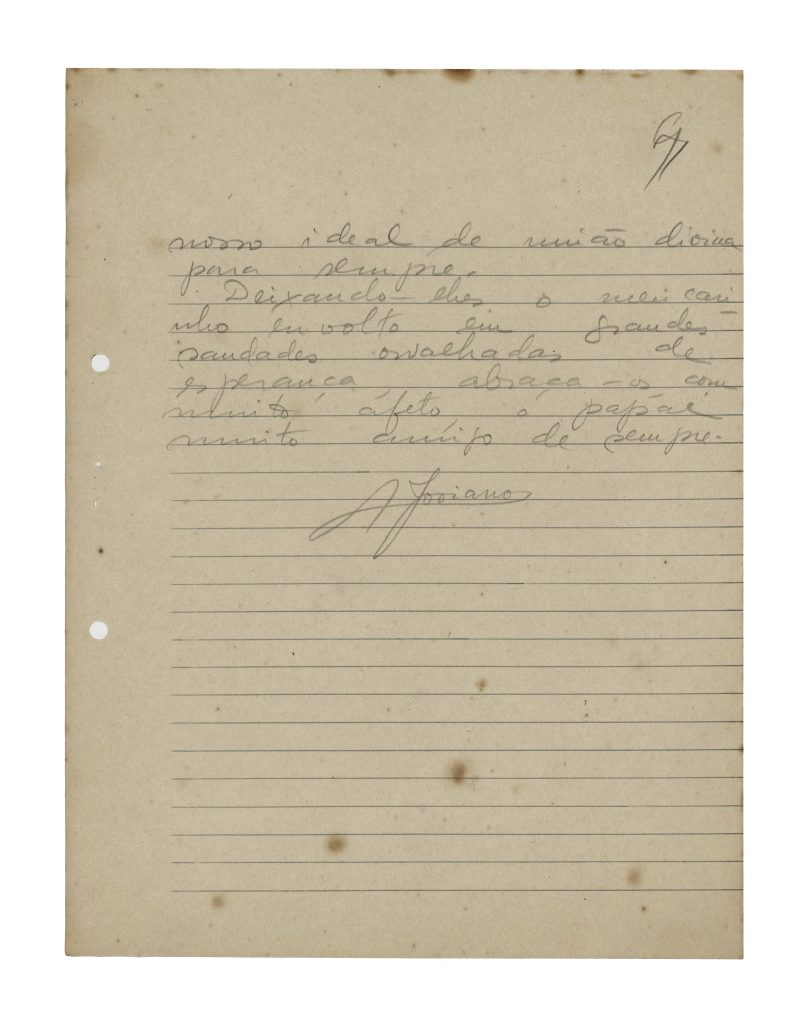 nosso ideal de união divina
para sempre.
Deixando-lhes o meu cari-
nho envolto em grandes
saudades orvalhadas de
esperança, abraça-os com
muito afeto o papai
muito amigo de sempre.
A Joviano